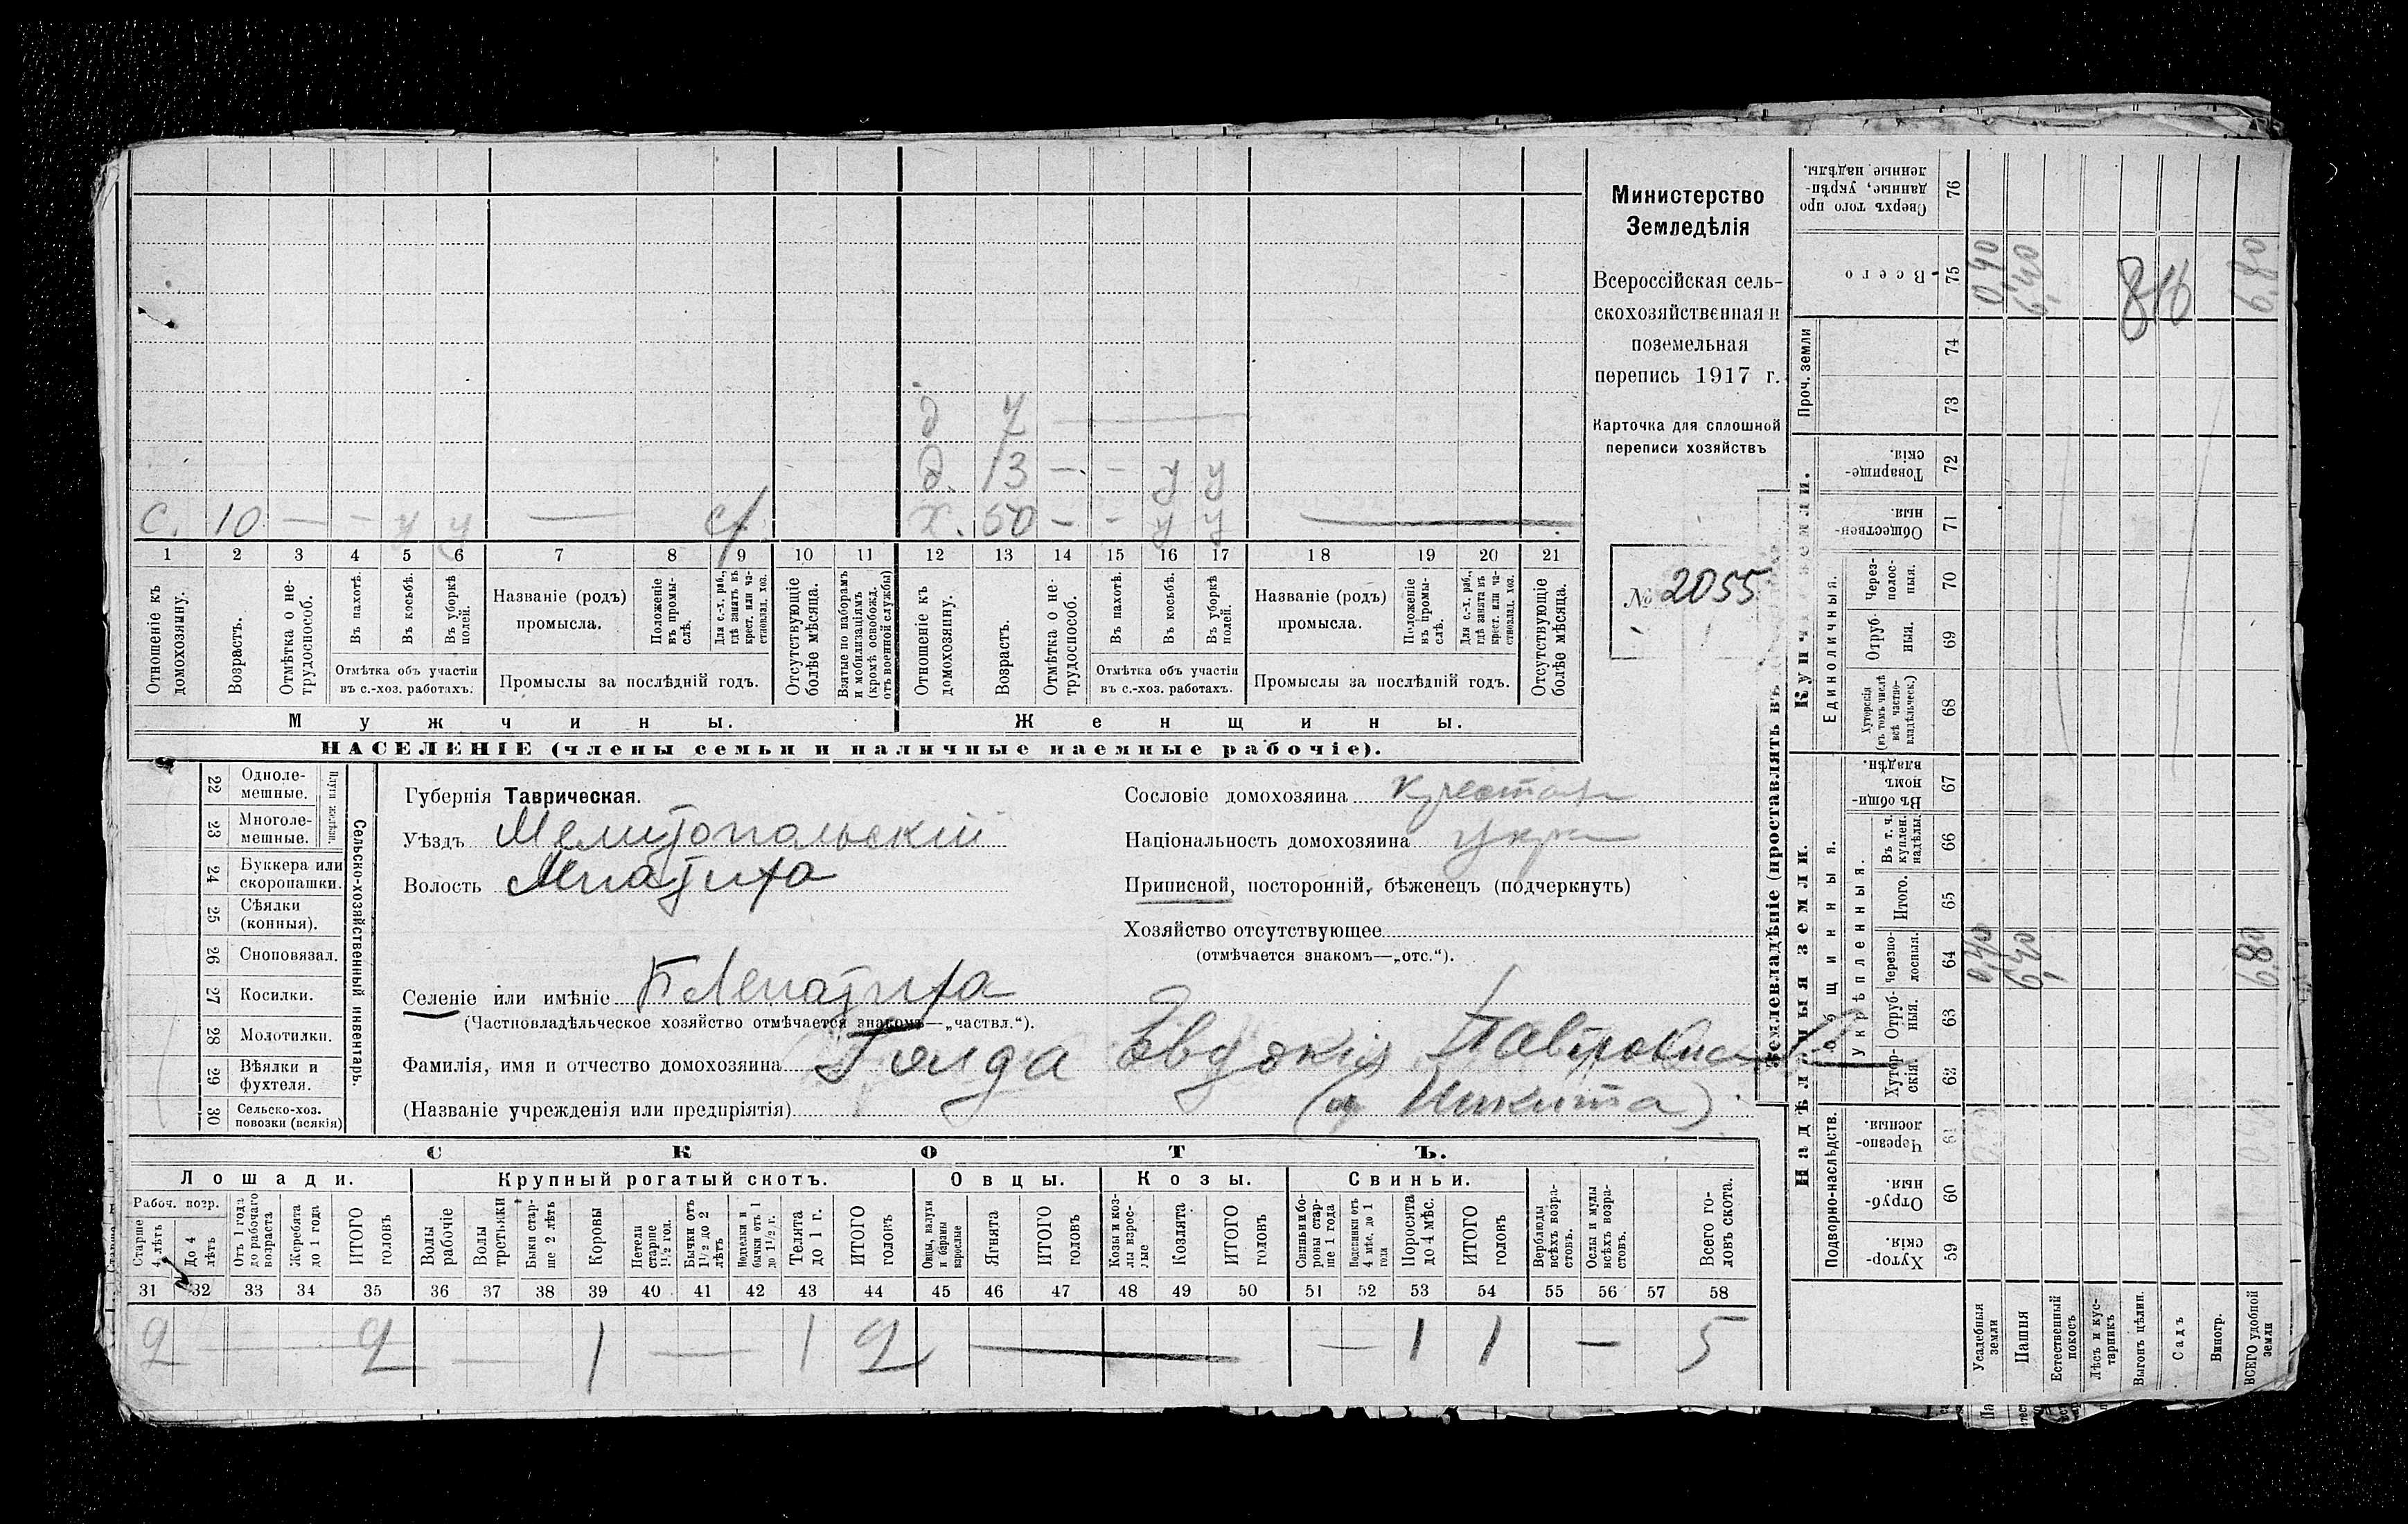 Министерство
Земледѣлія
Всероссійская сель-
скохозяйственная и
поземельная
перепись 1917 г.
Карточка для сплошной
переписи хозяйствъ
№ 2055
д 7 —
д. 13 — - у у
с. 10 — - у у —
х. 50 - - у у —
1 2 3 4 5 6 7 8 9 10 11 12 13 14 15 16 17 18 19 20 21
Отношеніе къ домохозяину.
Возрастъ.
Отмѣтка о не-трудоспособ.
Въ пахотѣ.
Въ косьбѣ.
Въ уборкѣ полей.
Отмѣтка объ участіи
въ с.-хоз. работахъ.
Названіе (родъ)
промысла.
Положеніе въ промы-слѣ.
Для с.-х. раб., гдѣ занятъ въ крест. или ча-стновлад. хоз.
Промыслы за послѣдній годъ.
Отсутствующіе болѣе мѣсяца.
Взятые по наборамъ и мобилизаціямъ (кромѣ освобожд. отъ военной службы)
Отношеніе къ домохозяину.
Возрастъ.
Отмѣтка о не-трудоспособ.
Въ пахотѣ.
Въ косьбѣ.
Въ уборкѣ полей.
Отмѣтка объ участіи
въ с.-хоз. работахъ.
Названіе (родъ)
промысла.
Положеніе въ промы-слѣ.
Для с.-х. раб., гдѣ занята въ крест. или ча-стновлад. хоз.
Промыслы за послѣдній годъ.
Отсутствующіе болѣе мѣсяца.
Мужчины. Женщины.
НАСЕЛЕНІЕ (члены семьи и наличные наемные рабочіе).
22 Одноле-мешные.
23 Многоле-мешные.
24 Буккера или скоропашки.
25 Сѣялки (конныя).
26 Сноповязал.
27 Косилки.
28 Молотилки.
29 Вѣялки и фухтеля.
30 Сельско-хоз. повозки (всякія)
Сельско-хозяйственный инвентарь.
Губернія Таврическая.
Уѣздъ Мелитопольскій
Волость
Селеніе или имѣніе Б Лепатиха
(Частновладѣльческое хозяйство отмѣчается знакомъ—„частвл.“).
Фамилія, имя и отчество домохозяина Евдокія
(Названіе учрежденія или предпріятія) Никита)
Сословіе домохозяина
Національность домохозяина укр
Приписной, посторонній, бѣженецъ (подчеркнуть)
Хозяйство отсутствующее
(отмѣчается знакомъ—„отс.“).
СКОТЪ.
Лошади. Крупный рогатый скотъ. Овцы. Козы. Свиньи.
Рабоч. возр.
Старше 4 лѣтъ
До 4 лѣтъ
Отъ 1 года до рабочаго возраста
Жеребята до 1 года
ИТОГО головъ
Волы рабочіе
Волы третьяки
Быки стар-ше 2 лѣтъ
Коровы
Нетели старше 1½ год.
Бычки отъ 1½ до 2 лѣтъ
Подтелки и бычки отъ 1 до 1½ г.
Телята до 1 г.
ИТОГО головъ
Овцы, валухи и бараны взрослые
Ягнята
ИТОГО головъ
Козы и коз-лы взрос-лые
Козлята
ИТОГО головъ
Свиньи и бо-ровы стар-ше 1 года
Подсвинки отъ 4 мѣс. до 1 года
Поросята до 4 мѣс.
ИТОГО головъ
Верблюды всѣхъ возра-стовъ.
Ослы и мулы всѣхъ возра-стовъ.
Всего го-ловъ скота.
31 32 33 34 35 36 37 38 39 40 41 42 43 44 45 46 47 48 49 50 51 52 53 54 55 56 57 58
2 — 2 — 1 — 1 2 — — 1 1 — 5
Землевладѣніе (проставлять въ
Купчія земли.
Надѣльныя земли.
Сверхъ того про данные, укрѣп-ленные надѣлы. 76
Всего 75 0,40 6,40 6,80
816
Проч. земли 74 73
Товарище-скія. 72
Обществен-ныя. 71
Единоличныя.
Через-полос-ныя. 70
Отруб-ныя. 69
Хуторскія (въ томъ числѣ всѣ частно-владѣльческ.) 68
Общинныя.
Въ общи-номъ владѣн. 67
Укрѣпленныя.
Въ т. ч. куплен. надѣлы. 66
Итого. 65
Черезпо-лосныя. 64 0,40 6,40 6,80
Отруб-ныя. 63
Хутор-скія 62
Подворно-наслѣдств.
Черезпо-лосныя. 61
Отруб-ныя. 60
Хутор-скія. 59
Усадебныя земли
Пашня
Естественный покосъ
Лѣсъ и кус-тарникъ
Выгонъ цѣлин.
Садъ
Виногр.
ВСЕГО удобной земли